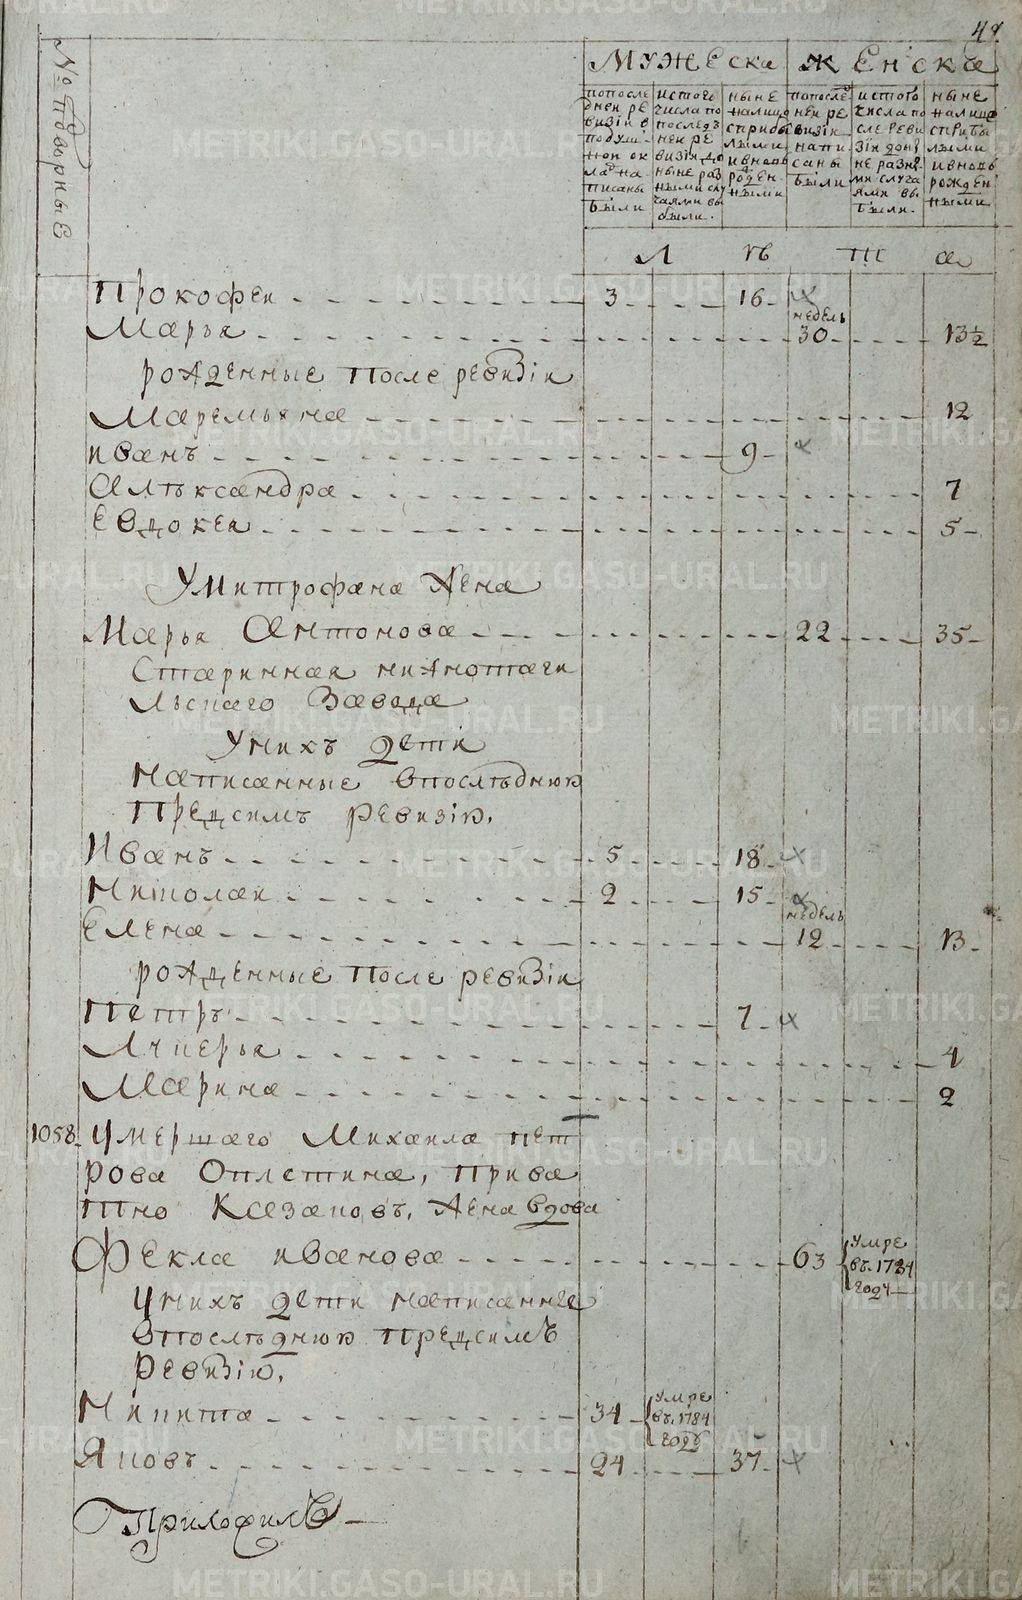 № подворные
Мужеска Женска
попосле днеи ре визiи в подуш- нои ок ладъ на писаны были
истого числа по последъ неи ре визiи до ныне раз ными слу чаями вы были.
ныне налицо сприбы лыми ивновь рожден ными
попослед неи ре визiи напи саны были
истого числа по сле реви зiи доны не разны ми случа ями вы были.
ныне налицо сприбы лыми ивновь рожден ными
Л ѣ т а
Прокофеи 3 16
Марья недель 30 13½
рожденные После ревизiи
Маремьяна 12
иванъ 9
Алѣксандра 7
Евдокея 5
У Митрофана Жена
Марья Антонова 22 35
Старинная нижнотаги
льскаго Завода
Унихъ дети
написанные впослѣднюю
Предсимъ ревизiю.
Иванъ 5 18
Николаи 2 15
Елена недель 12 13
рожденные После ревизiи
Петръ 7
Лукерья 4
Марина 2
1058 Умершаго Михаила пет
рова Оплетина, Прива
тно Казаковъ, Жена вдова
Фекла иванова 63 Умре въ 1784 году
Унихъ дети написанные
впослѣднюю предсимъ
Ревизiю.
Никита 34 Умре въ 1784 годѣ
Яковъ 24 37
METRIKI.GASO-URAL.RU